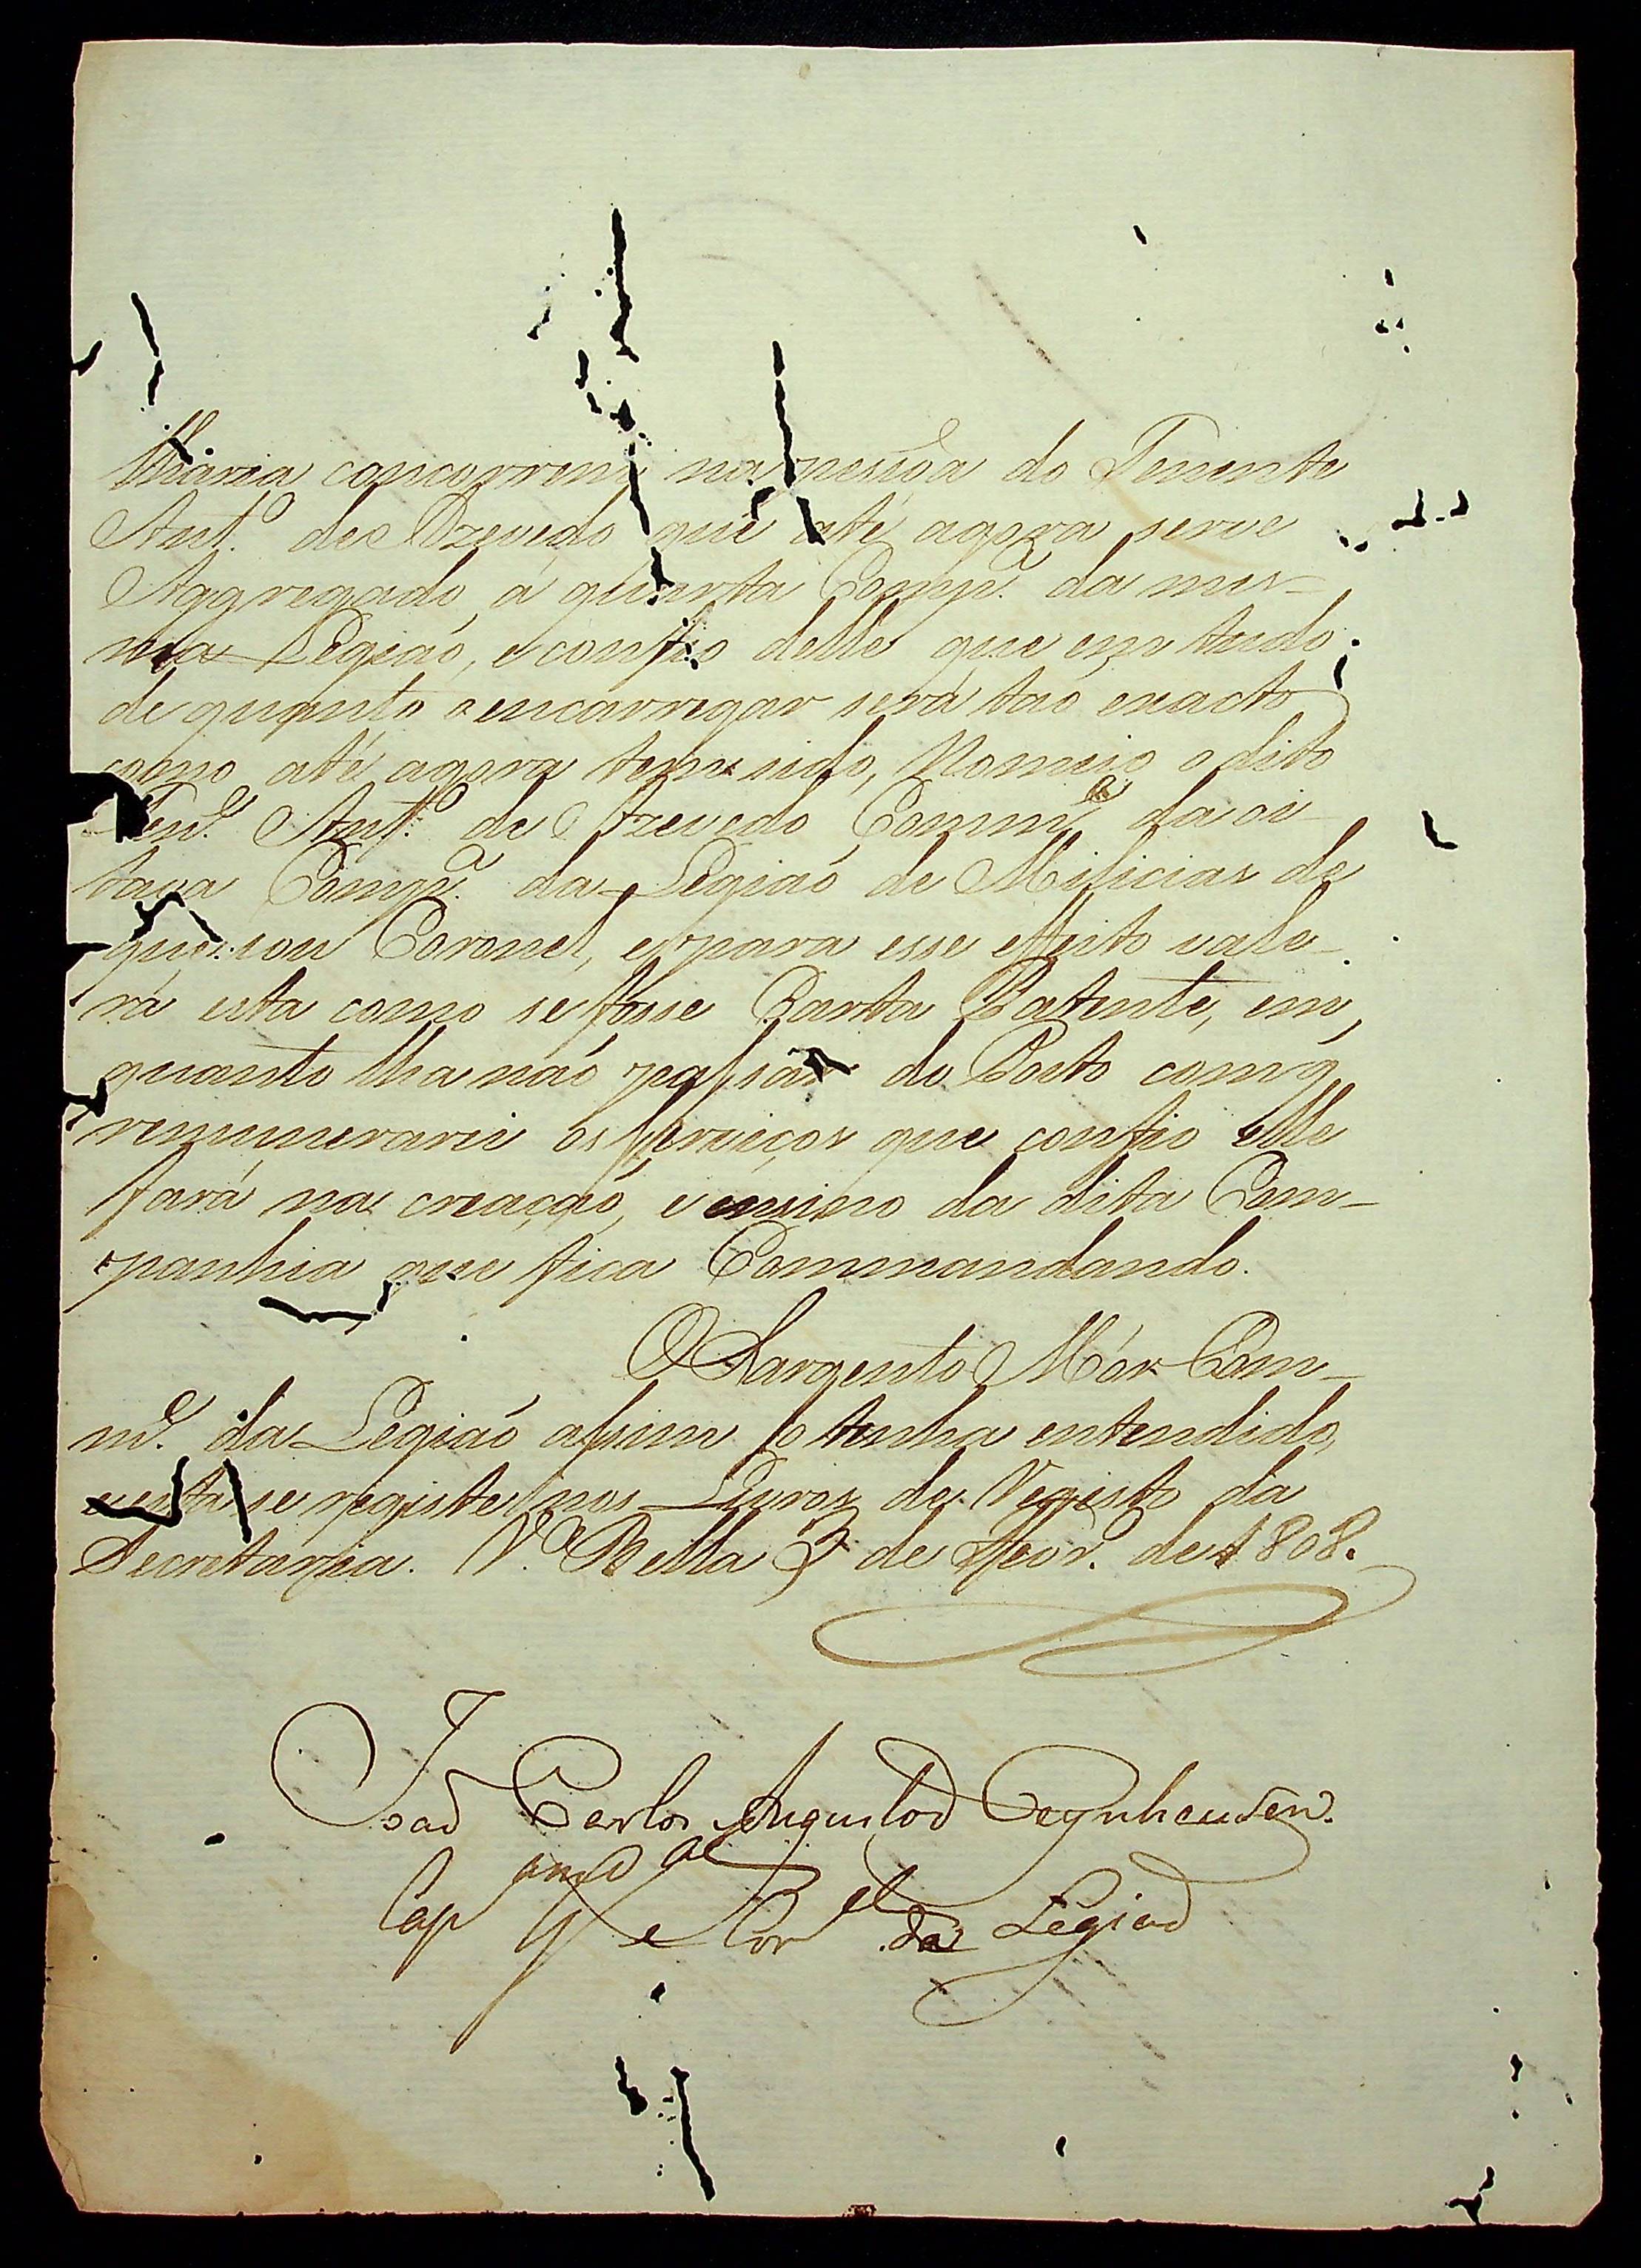 concorrem na pessoa do Tenente
Ant.º de Azevedo que até agora serve
Aggregado á quarta Comp.ª da mes-
ma Legiaõ, e confio delle que em tudo
de quanto o encarregar será taõ exacto
como até agora tem sido, Nomeio o dito
Ten.e Ant.º de Azevedo Comm.e da oi-
tava Comp.ª da Legiaõ de Milicias de
que sou Coronel, e para esse effeito vale-
rá esta como se fosse Carta Patente, em
quanto lha naõ passar do Posto com q̃
remunerarei os serviços que confio elle
fará na creaçaõ, e ensino da dita Com-
panhia que fica Commandando.
O Sargento Mór Com-
m.e da Legiaõ assim o tenha entendido,
e esta se registe nos Livros de Registo da
Secretaria. V.ª Bella 3 de Fevr.º de 1808.
Joaõ Carlos Augusto d Oeynhausen.
Cap G.al e Cor.el da Legiaõ